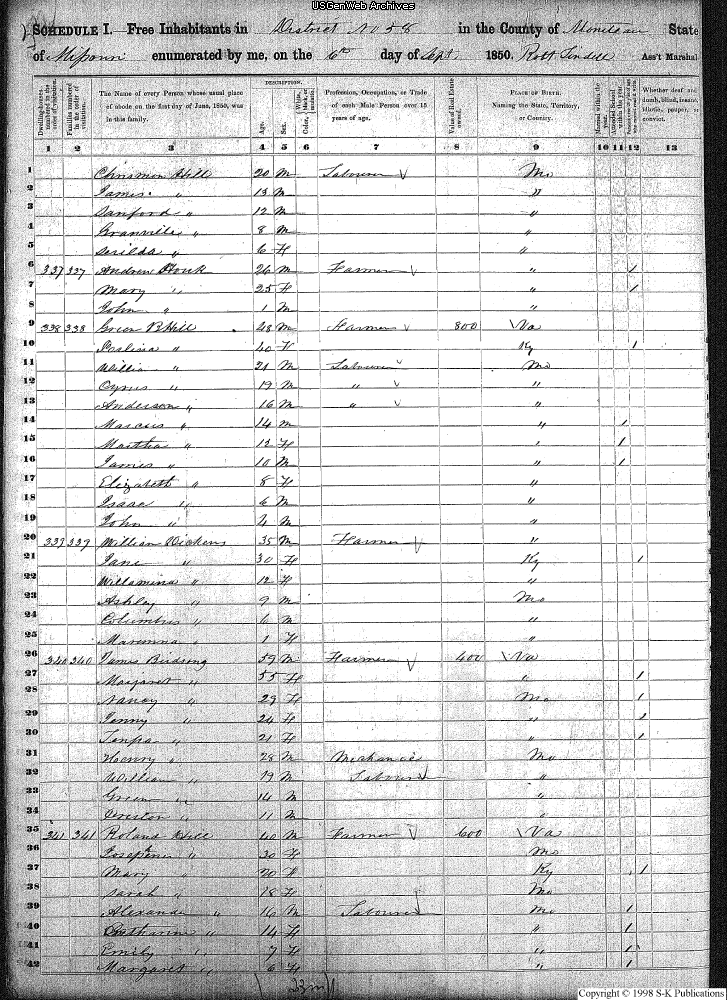 USGenWeb Archives
SCHEDULE I. Free Inhabitants in District No 58 in the County of Moniteau State
of Missouri enumerated by me, on the 6th day of Sept 1850. Robt Ass't Marshal
Dwelling-houses numbered in the order of visitation.
Families numbered in the order of visitation.
The Name of every Person whose usual place of abode on the first day of June, 1850, was in this family.
DESCRIPTION.
Age.
Sex.
White, Color, black, or mulatto.
Profession, Occupation, or Trade of each Male Person over 15 years of age.
Value of Real Estate owned.
PLACE OF BIRTH. Naming the State, Territory, or Country.
Married within the year.
Attended School within the year.
Whether deaf and dumb, blind, insane, idiotic, pauper, or convict.
1 2 3 4 5 6 7 8 9 10 11 12 13
1 Hill 20 M Labourer Mo
2 James " 13 M "
3 Sanford " 12 M "
4 Granville " 8 M "
5 Serilda " 6 F "
6 337 337 Andrew 26 M Farmer " 1
7 Mary " 25 F " 1
8 John " 1 M "
9 338 338 Green B Hill 48 M Farmer 800 Va
10 " 40 F Ky 1
11 William " 21 M Labourer Mo
12 Cyrus " 19 M " "
13 Anderson " 16 M " "
14 Marcus " 14 M " 1
15 Martha " 12 F " 1
16 James " 10 M " 1
17 Elizabeth " 8 F "
18 Isaac " 6 M "
19 John " 4 M "
20 339 339 William Dickens 35 M Farmer "
21 Jane " 30 F Ky 1
22 Willamina " 12 F "
23 Ashley " 9 M Mo
24 Columbus " 6 M "
25 " 1 F "
26 340 340 James Birdsong 59 M Farmer 400 Va
27 Margaret " 55 F " 1
28 Nancy " 29 F Mo 1
29 Jenny " 24 F " 1
30 " 21 F " 1
31 Henry " 28 M Mechanic Mo
32 William " 19 M Labourer "
33 Green " 14 M "
34 " 11 M "
35 341 341 Roland Hill 40 M Farmer 600 Va
36 " 30 F Mo
37 Mary " 20 F Ky 1
38 Sarah " 18 F Mo
39 Alexander " 16 M Labourer Mo 1
40 Catharine " 14 F " 1
41 Emily " 7 F " 1
42 Margaret " 6 F " 1
23 m
Copyright © 1998 S-K Publications